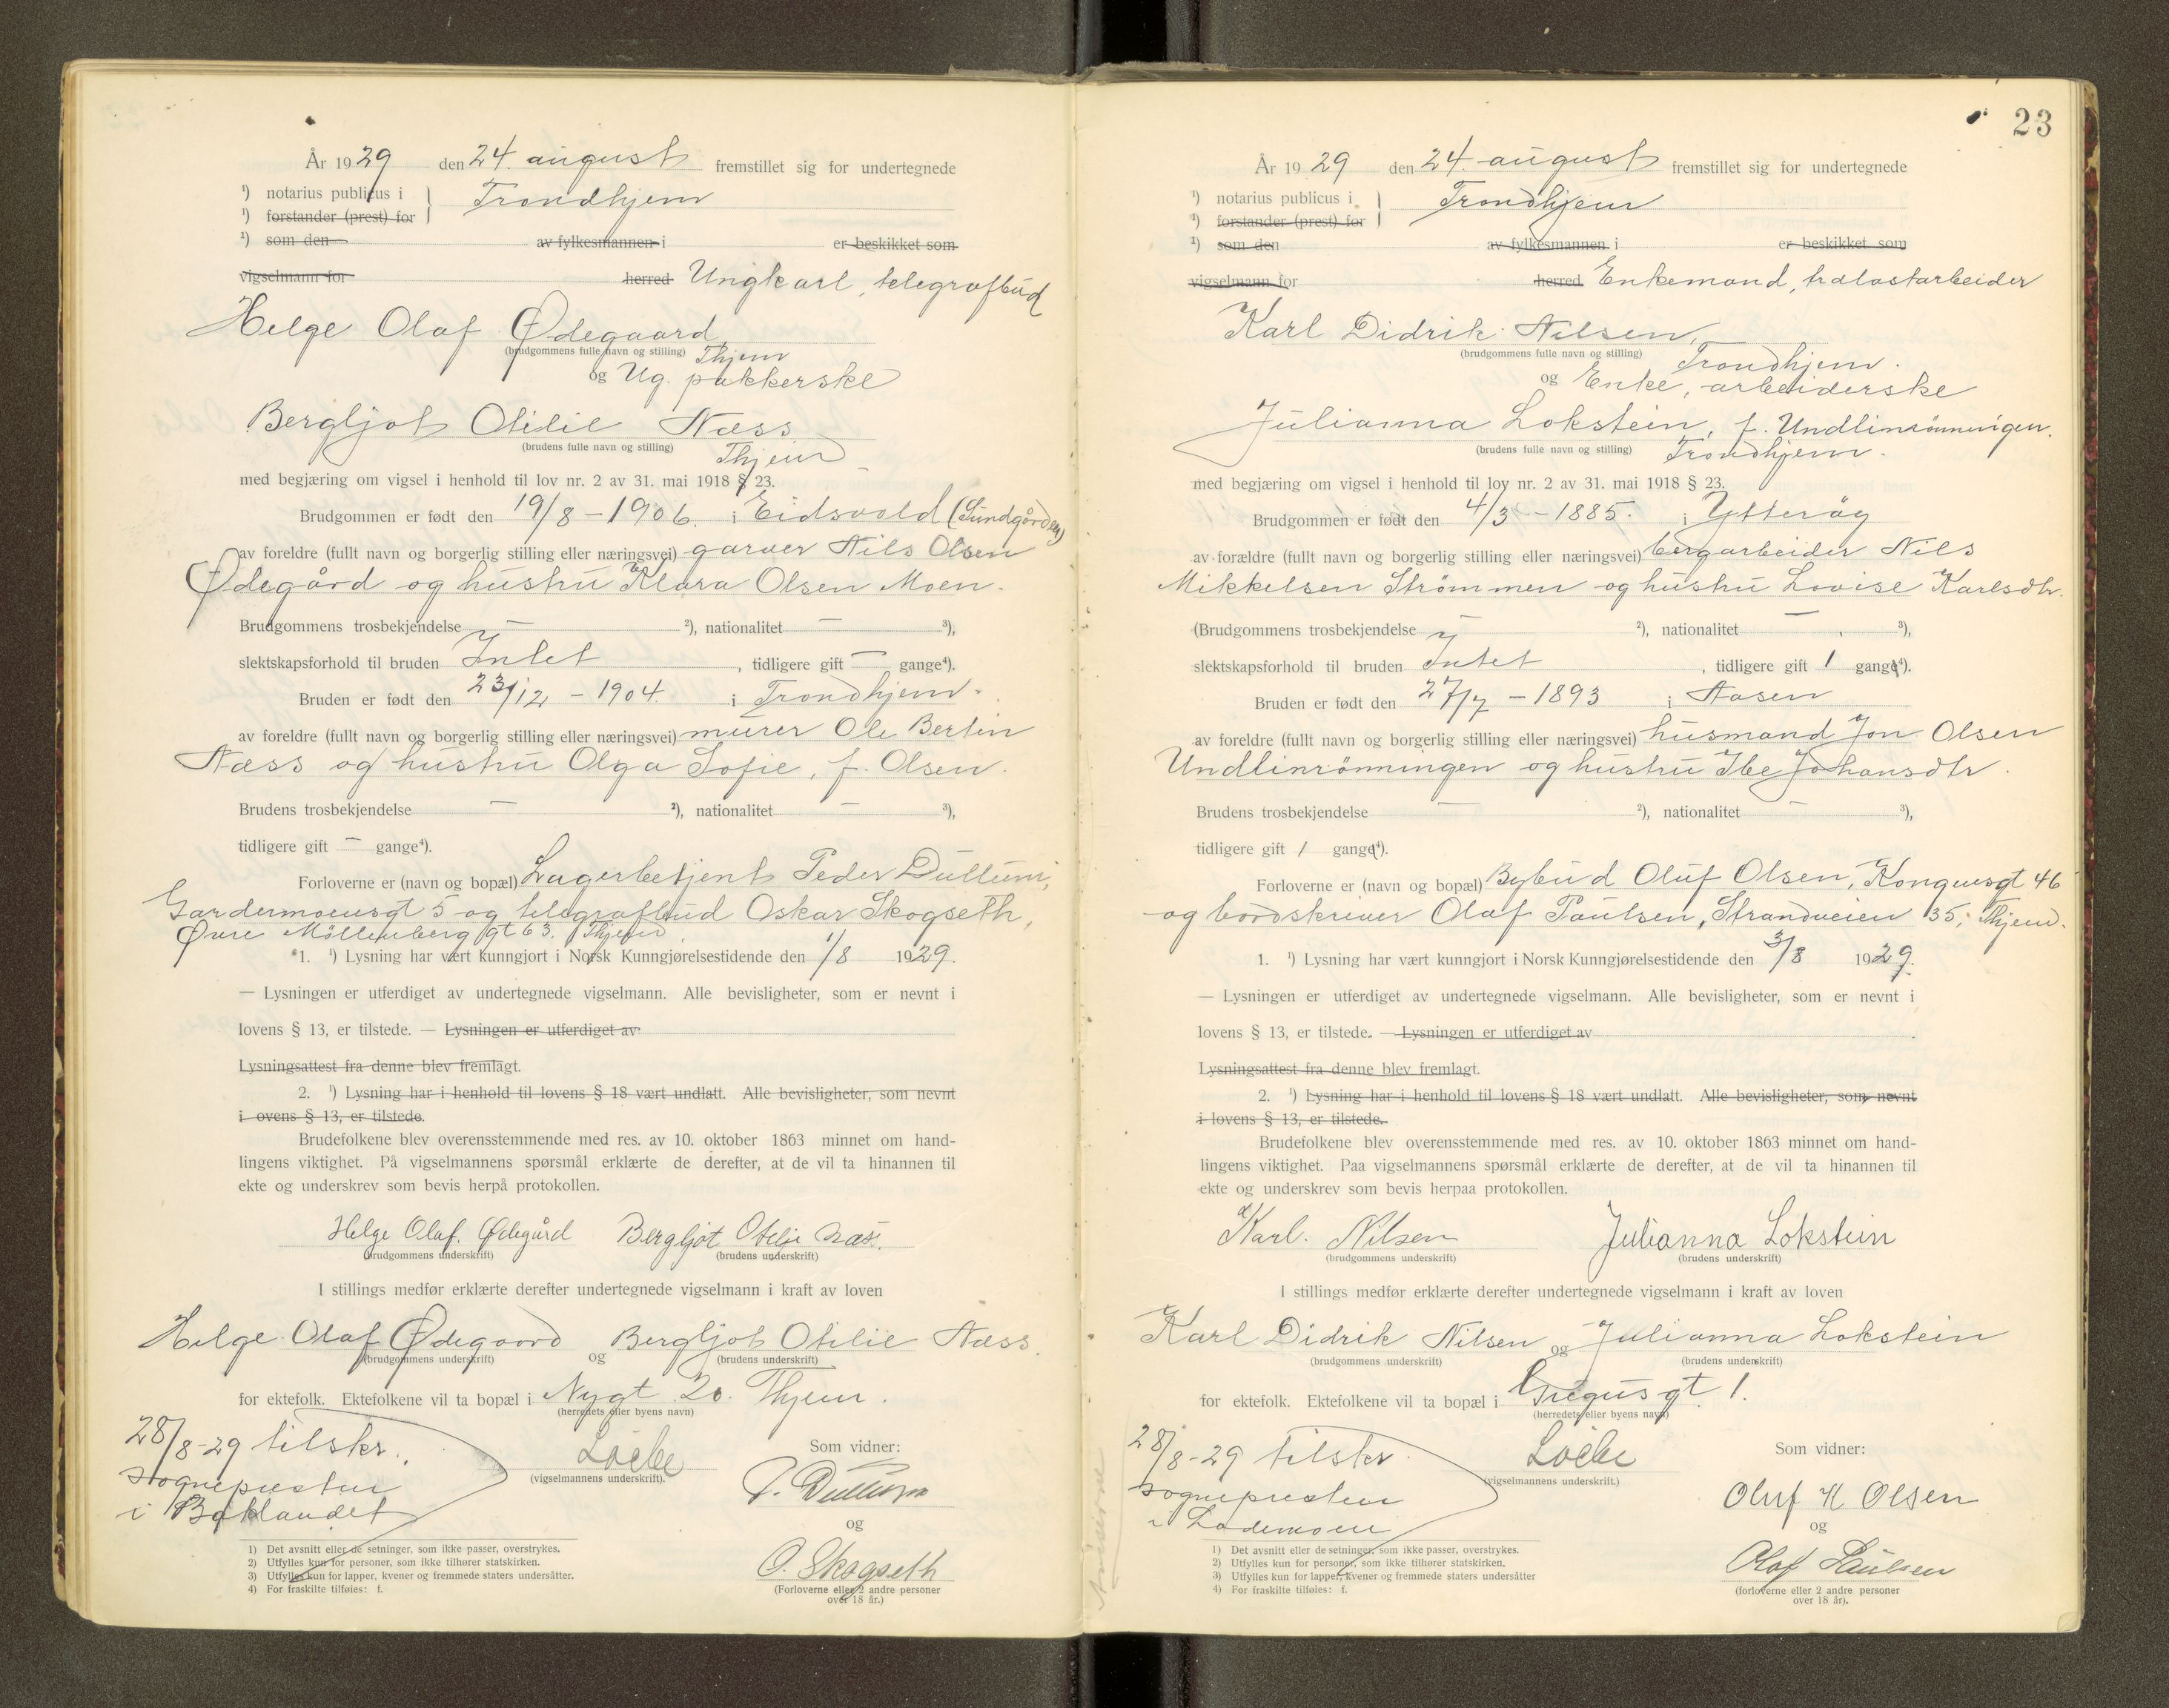 År 1929 den 24. august fremstillet sig for undertegnede
¹) notarius publicus i } Trondhjem
¹) forstander (prest) for
¹) som den av fylkesmannen i er beskikket som
vigselmann for herred Ungkarl, telegrafbud
Helge Olaf Ødegaard,
(brudgommens fulle navn og stilling) Thjem
og Ug. pakkerske
Bergljot Otilie Næss
(brudens fulle navn og stilling) Thjem
med begjæring om vigsel i henhold til lov nr. 2 av 31. mai 1918 § 23.
Brudgommen er født den 19/8 – 1906. i Eidsvold (Sundgården)
av foreldre (fullt navn og borgerlig stilling eller næringsvei) garver Nils Olsen
Ødegård og hustru Klara Olsen Moen.
Brudgommens trosbekjendelse — ²), nationalitet — ³),
slektskapsforhold til bruden Intet, tidligere gift — gange⁴).
Bruden er født den 23/12 – 1904. i Trondhjem.
av foreldre (fullt navn og borgerlig stilling eller næringsvei) murer Ole Bertin
Næss og hustru Olga Sofie, f. Olsen.
Brudens trosbekjendelse — ²), nationalitet — ³),
tidligere gift — gange⁴).
Forloverne er (navn og bopæl) Lagerbetjent Peder Dullum,
Gardermoensgt 5 og telegrafbud Oskar Skogseth,
Øvre Møllenberg gt 63. Thjem
1. ¹) Lysning har vært kunngjort i Norsk Kunngjørelsestidende den 1/8 1929.
— Lysningen er utferdiget av undertegnede vigselmann. Alle bevisligheter, som er nevnt i
lovens § 13, er tilstede. — Lysningen er utferdiget av
Lysningsattest fra denne blev fremlagt.
2. ¹) Lysning har i henhold til lovens § 18 vært undlatt. Alle bevisligheter, som nevnt
i ovens § 13, er tilstede.
Brudefolkene blev overensstemmende med res. av 10. oktober 1863 minnet om hand-
lingens viktighet. På vigselmannens spørsmål erklærte de derefter, at de vil ta hinannen til
ekte og underskrev som bevis herpå protokollen.
Helge Olaf. Ødegård Bergljot Otilie Næss.
(brudgommens underskrift) (brudens underskrift)
I stillings medfør erklærte derefter undertegnede vigselmann i kraft av loven
Helge Olaf Ødegaard og Bergljot Otilie Næss.
(brudgommens underskrift) (brudens underskrift)
for ektefolk. Ektefolkene vil ta bopæl i Nygt 20. Thjem.
(herredets eller byens navn)
28/8-29 tilskr.
sognepresten
i Baklandet
(vigselmannens underskrift).
Som vidner:
P. Dullum
og
O. Skogseth
(Forloverne eller 2 andre personer
over 18 år.)
1) Det avsnitt eller de setninger, som ikke passer, overstrykes.
2) Utfylles kun for personer, som ikke tilhører statskirken.
3) Utfylles kun for lapper, kvener og fremmede staters undersåtter.
4) For fraskilte tilføies: f.
23
År 1929 den 24. august fremstillet sig for undertegnede
¹) notarius publicus i } Trondhjem
¹) forstander (prest) for
¹) som den av fylkesmannen i er beskikket som
vigselmann for herred Enkemand, trælastarbeider
Karl Didrik Nilsen,
(brudgommens fulle navn og stilling) Trondhjem.
og Enke, arbeiderske
Julianna Lokstein, f. Undlinrönningen.
(brudens fulle navn og stilling) Trondhjem.
med begjæring om vigsel i henhold til lov nr. 2 av 31. mai 1918 § 23.
Brudgommen er født den 4/3 – 1885. i Ytterøy
av forældre (fullt navn og borgerlig stilling eller næringsvei) bergarbeider Nils
Mikkelsen Strömmen og hustru Lovise Karlsdtr.
(Brudgommens trosbekjendelse — ²), nationalitet — ³),
slektskapsforhold til bruden Intet, tidligere gift 1 gang⁴).
Bruden er født den 27/7 – 1893 i Aasen
av foreldre (fullt navn og borgerlig stilling eller næringsvei) husmand Jon Olsen
Undlinrönningen og hustru Ibe Johansdtr.
Brudens trosbekjendelse — ²), nationalitet — ³),
tidligere gift 1 gang⁴).
Forloverne er (navn og bopæl) Bybud Oluf Olsen, Kongensgt 46
og bordskriver Olaf Paulsen, Strandveien 35, Thjem.
1. ¹) Lysning har vært kunngjort i Norsk Kunngjørelsestidende den 3/8 1929.
— Lysningen er utferdiget av undertegnede vigselmann. Alle bevisligheter, som er nevnt i
lovens § 13, er tilstede. — Lysningen er utferdiget av
Lysningsattest fra denne blev fremlagt.
2. ¹) Lysning har i henhold til lovens § 18 vært undlatt. Alle bevisligheter, som nevnt
i lovens § 13, er tilstede.
Brudefolkene blev overensstemmende med res. av 10. oktober 1863 minnet om hand-
lingens viktighet. Paa vigselmannens spørsmål erklærte de derefter, at de vil ta hinannen til
ekte og underskrev som bevis herpaa protokollen.
Karl. Nilsen Julianna Lokstein
(brudgommens underskrift) (brudens underskrift)
I stillings medfør erklærte derefter undertegnede vigselmann i kraft av loven
Karl Didrik Nilsen og Julianna Lokstein
(brudgommens underskrift) (brudens underskrift)
for ektefolk. Ektefolkene vil ta bopæl i 1.
(herredets eller byens navn)
28/8-29 tilskr.
sognepresten
i Lademoen
(vigselmannens underskrift.)
Som vidner:
Oluf H Olsen
og
Olaf Paulsen
(forloverne eller 2 andre personer
over 18 år).
1) Det avsnitt eller de setninger, som ikke passer, overstrykes.
2) Utfylles kun for personer, som ikke tilhører statskirken.
3) Utfylles kun for lapper, kvener og fremmede staters undersåtter
4) For fraskilte tilføies: f.